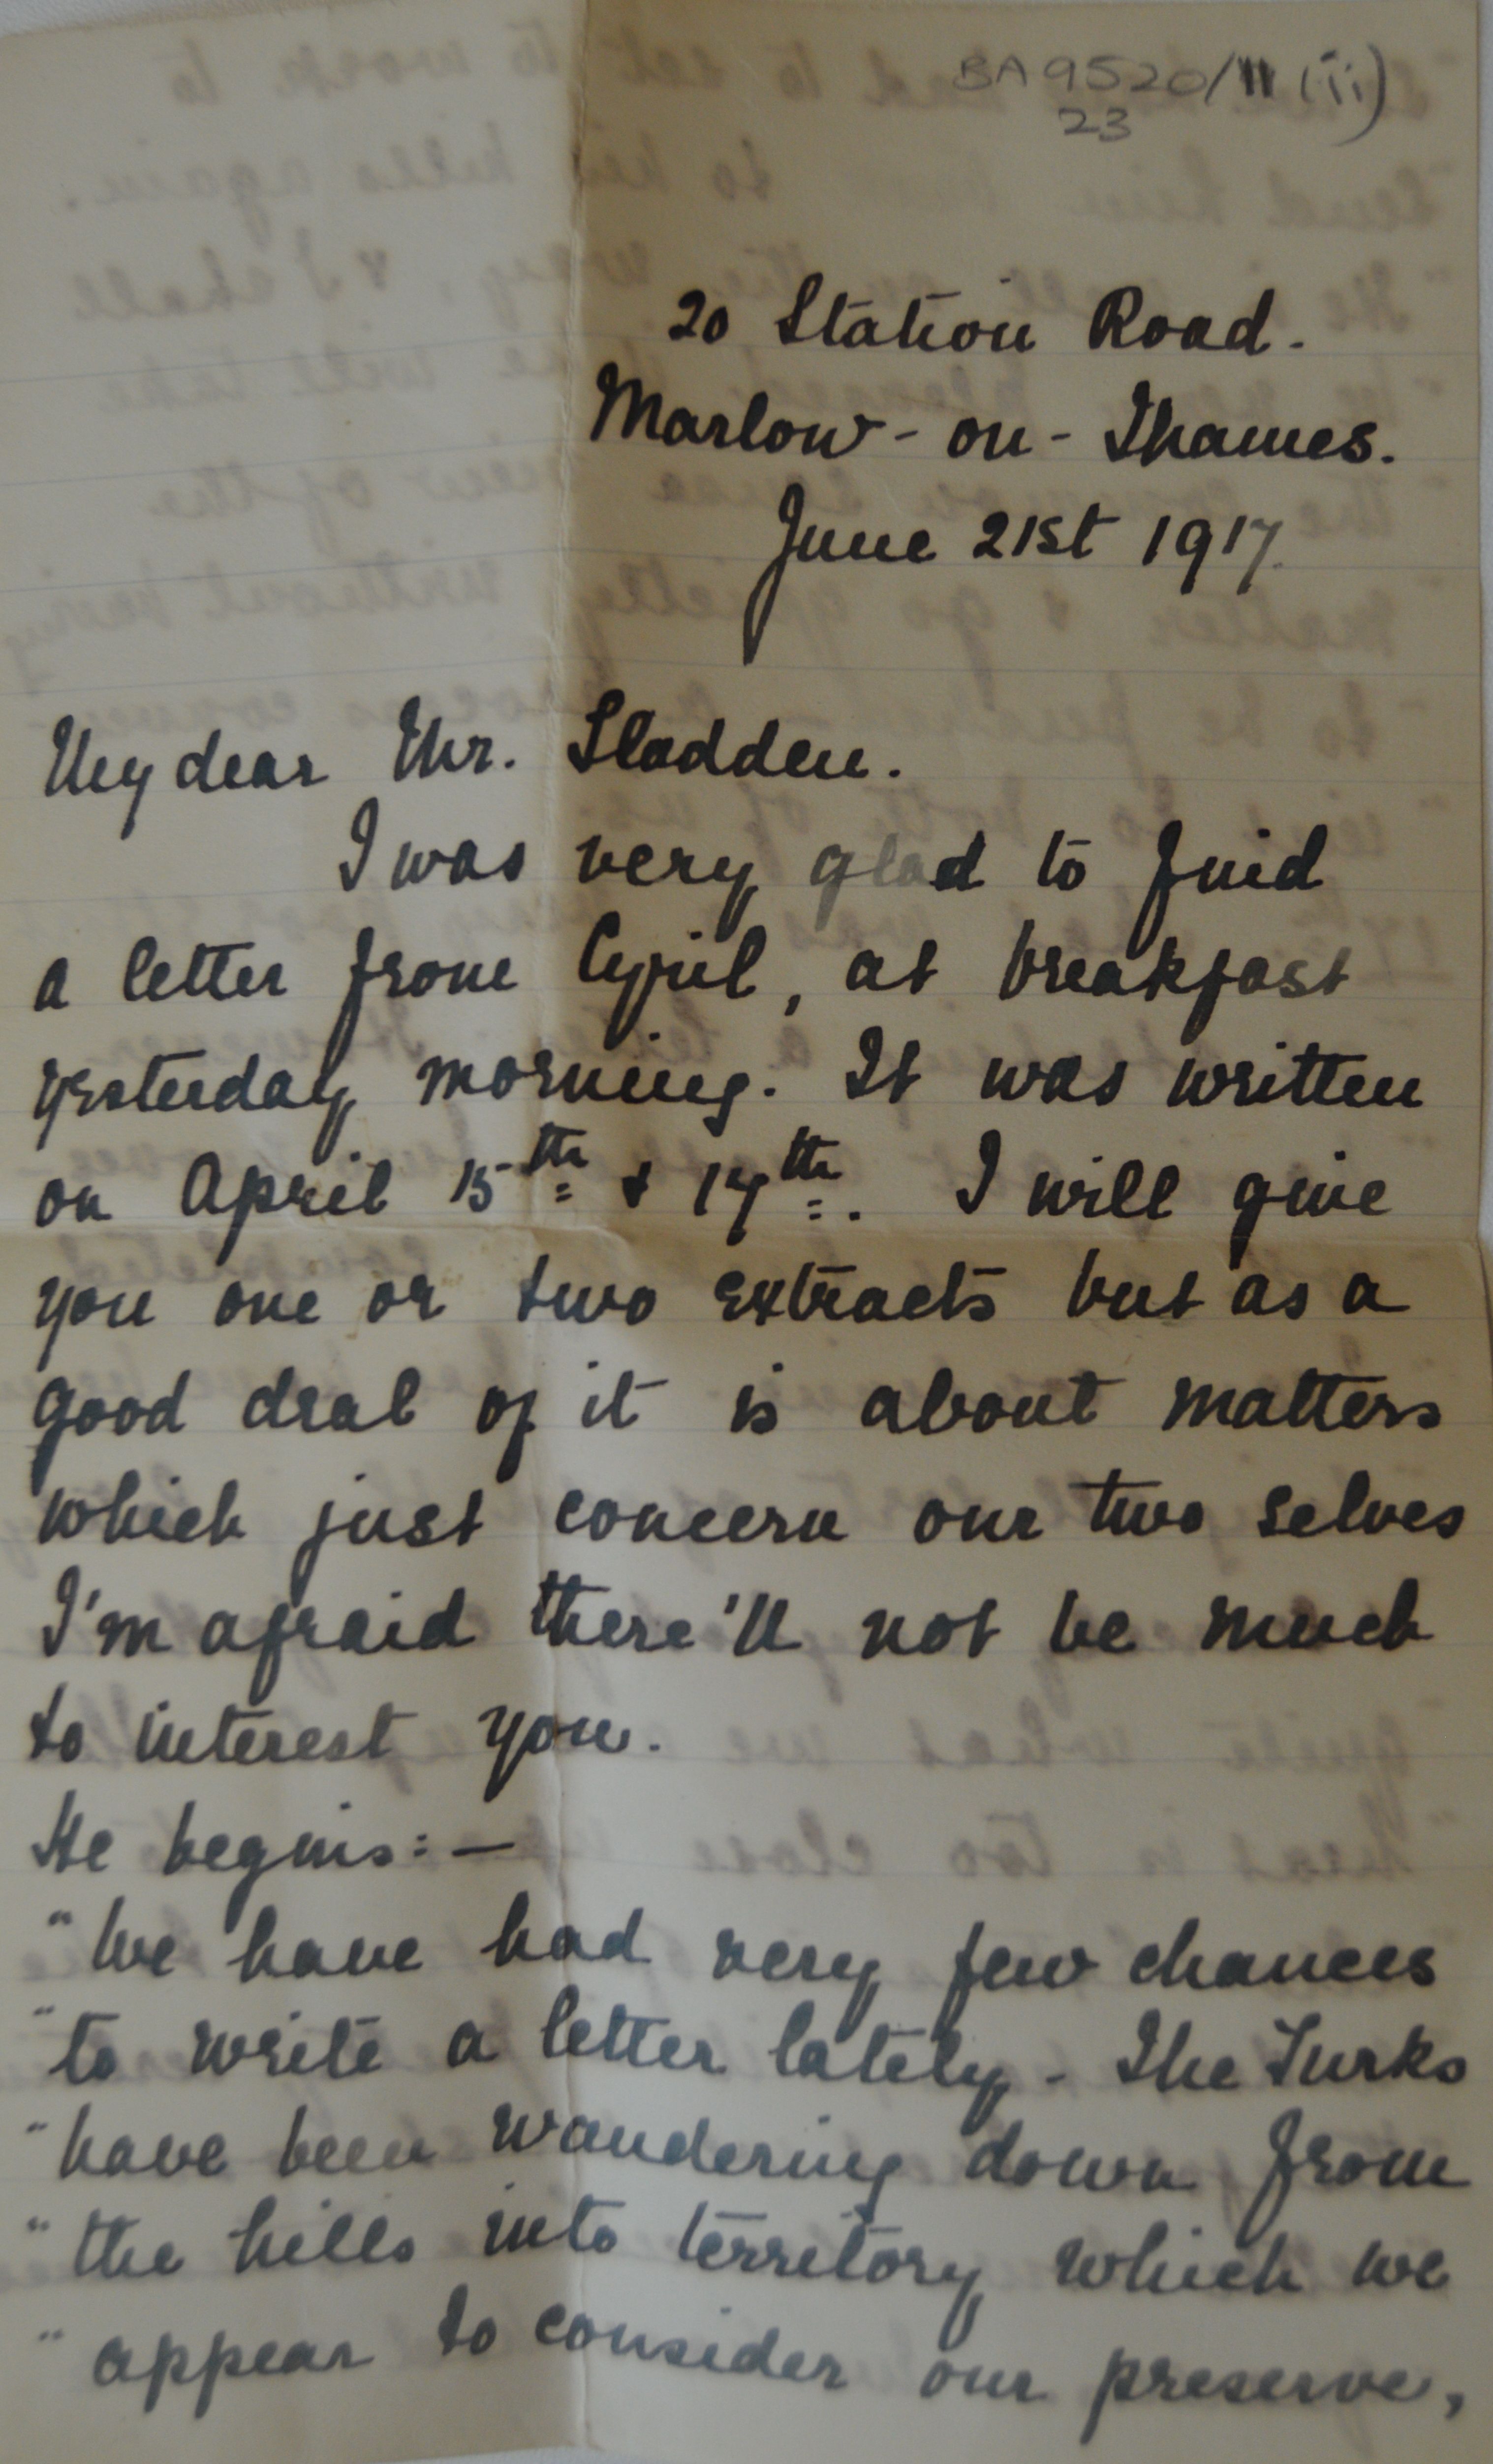 BA 9520/11 (ii)
23
20 Station Road.
Marlow-on-Thames.
June 21st 1917.
My dear Mr. Sladden.
I was very glad to find
a letter from Cyril, at breakfast
yesterday morning. It was written
on April 15th & 17th. I will give
you one or two extracts but as a
good deal of it is about matters
which just concern our two selves
I'm afraid there'll not be much
to interest you.
He begins:—
"We have had very few chances
"to write a letter lately - The Turks
"have been wandering down from
"the hills into territory which we
"appear to consider our preserve,